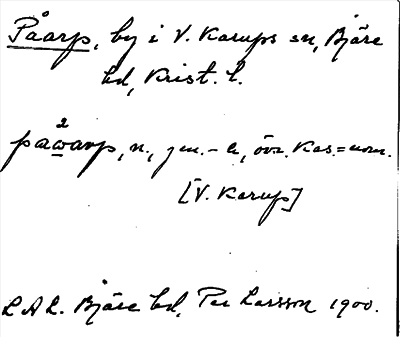 Påarp, by i V. Karups sn, Bjäre
hd, Krist. l.
påw²arp, n., gen. - s, övr. kas. = nom.
[V. Karup]
LAL. Bjäre hd, Per Larsson 1900.